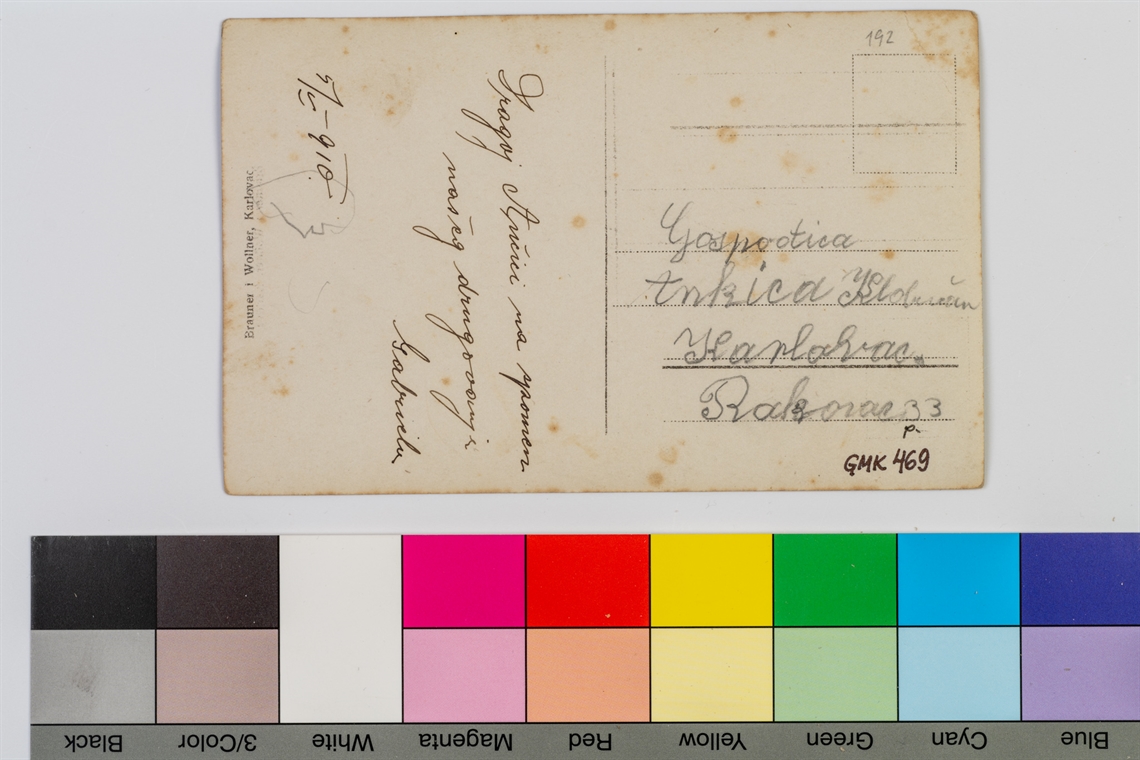 192
5/V – 910.
Dragoj Anici na spomen
našeg drugovanja
Gabriela
Brauner i Wollner, Karlovac
Gospodica
Ankica
Karlovac.
Rakovac 33
p.
GMK 469
Black
3/Color
White
Magenta
Red
Yellow
Green
Cyan
Blue